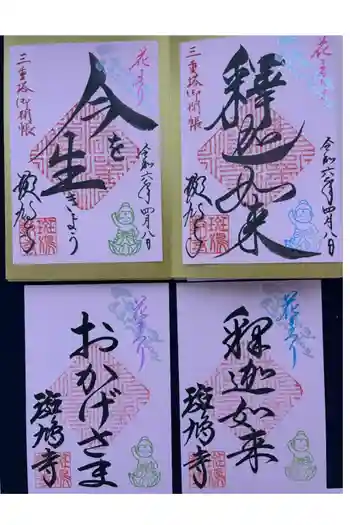 花まつり
三重塔御開帳
釋迦如来
令和六年四月八日
斑鳩寺
花まつり
三重塔御開帳
今を
生きよう
令和六年四月八日
斑鳩寺
花まつり
釋迦如来
斑鳩寺
花まつり
おかげさま
斑鳩寺